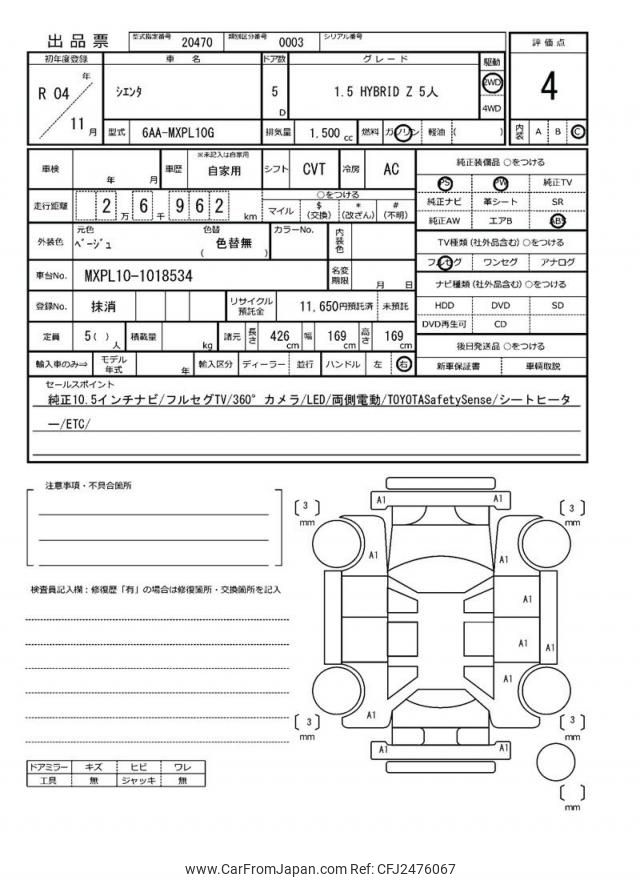 出品票 型式指定番号 20470 類別区分番号 0003 シリアル番号
初年度登録 車 名 ドア数 グレード 駆動 評価点
R 04 年 11 月 シエンタ 5 D 1.5 HYBRID Z 5人 2WD 4WD 4
型式 6AA-MXPL10G 排気量 1,500 cc 燃料 ガソリン 軽油 ( ) 内装 A B C
車検 年 月 車歴 ※未記入は自家用 自家用 シフト CVT 冷房 AC 純正装備品 ○をつける
PS PW 純正TV
走行距離 2 万 6 千 9 6 2 km ○をつける
マイル $ (交換) * (改ざん) # (不明)
純正ナビ 革シート SR
純正AW エアB ABS
外装色 元色 ベージュ 色替 色替無 ( ) カラーNo. 内装色
TV種類 (社外品含む) ○をつける
フルセグ ワンセグ アナログ
車台No. MXPL10-1018534 名変期限 月 日
ナビ種類 (社外品含む) ○をつける
登録No. 抹消 リサイクル預託金 11,650円預託済 未預託
HDD DVD SD
DVD再生可 CD
定員 5 ( ) 人 積載量 kg 諸元 長さ 426 cm 幅 169 cm 高さ 169 cm
後日発送品 ○をつける
輸入車のみ⇒ モデル年式 年 輸入区分 ディーラー 並行 ハンドル 左 右
新車保証書 車輌取説
セールスポイント
純正10.5インチナビ/フルセグTV/360°カメラ/LED/両側電動/TOYOTASafetySense/シートヒータ
ー/ETC/
注意事項・不具合箇所
検査員記入欄：修復歴「有」の場合は修復箇所・交換箇所を記入
ドアミラー キズ ヒビ ワレ
工具 無 ジャッキ 無
A1 A1
3 mm 3 mm
A1 A1
A1
A1 A1
A1
A1
3 mm 3 mm
A1 A1
mm
www.CarFromJapan.com Ref: CFJ2476067